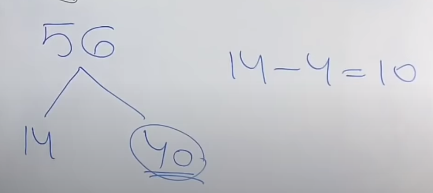 56
14 - 4 = 10
14
40